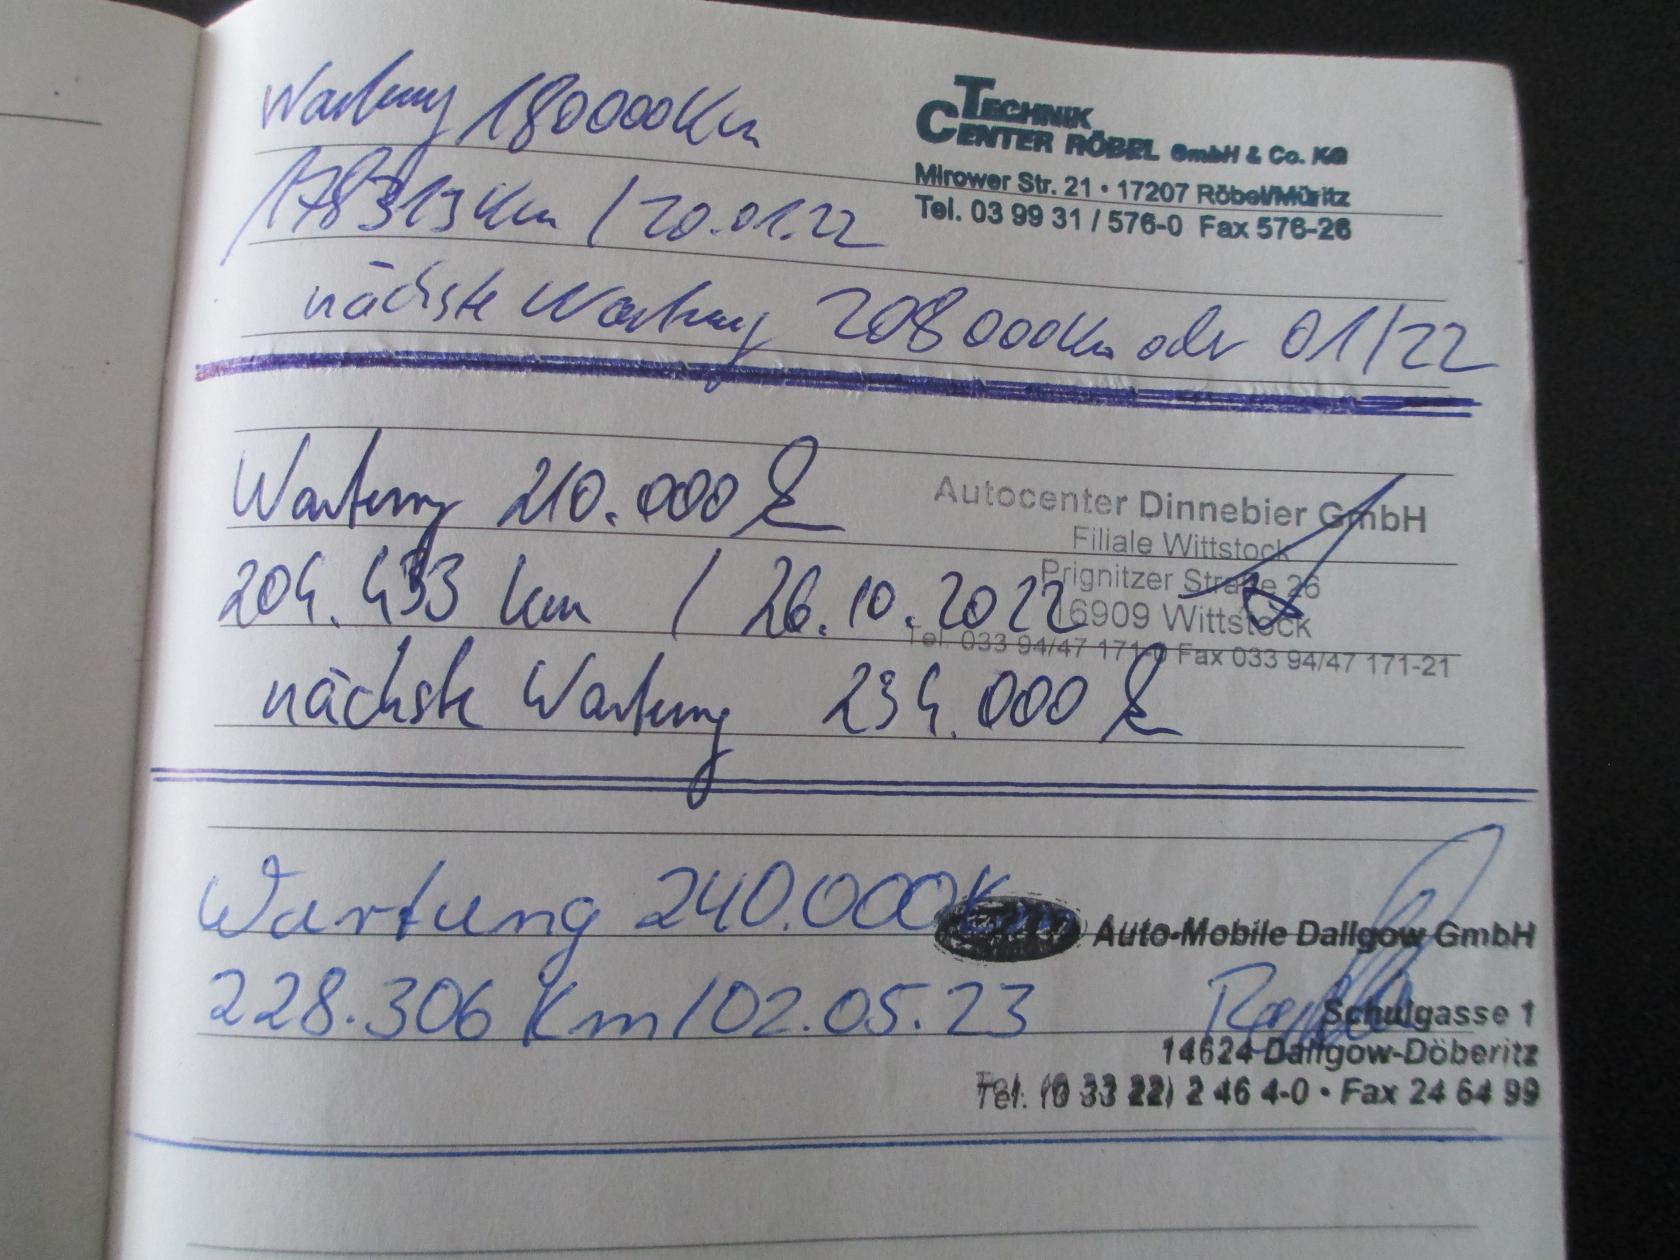 Wartung 180000Km
TECHNIK
CENTER RÖBEL GmbH & Co. KG
Mirower Str. 21 • 17207 Röbel/Müritz
Tel. 03 99 31 / 576-0 Fax 576-26
178313Km / 20.01.22
nächste Wartung 208000Km oder 01/22
Wartung 210.000
Autocenter Dinnebier GmbH
Filiale Wittstock
Prignitzer Straße 26
16909 Wittstock
Tel. 033 94/47 171-0 Fax 033 94/47 171-21
204.433 km / 26.10.2022
nächste Wartung 234.000
Wartung 240.000Km
Auto-Mobile Dallgow GmbH
228.306 Km/02.05.23
Schulgasse 1
14624 Dallgow-Döberitz
Tel. (0 33 22) 2 46 4-0 • Fax 24 64 99